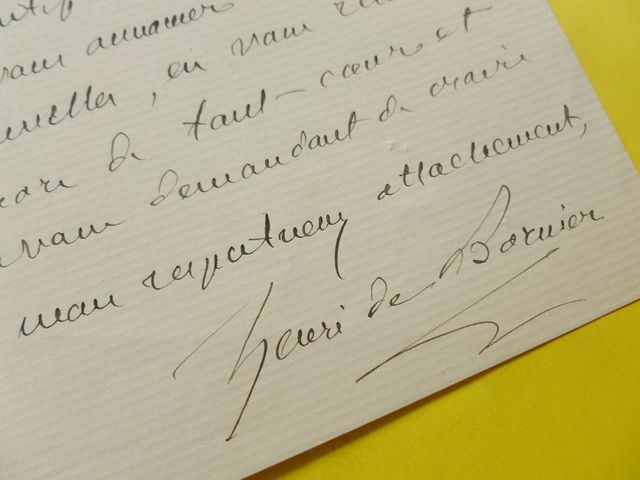 vous annoncer
, en vous
de tout-cœur et
vous demandant de croire
mon respectueux attachement,
Henri de Bornier